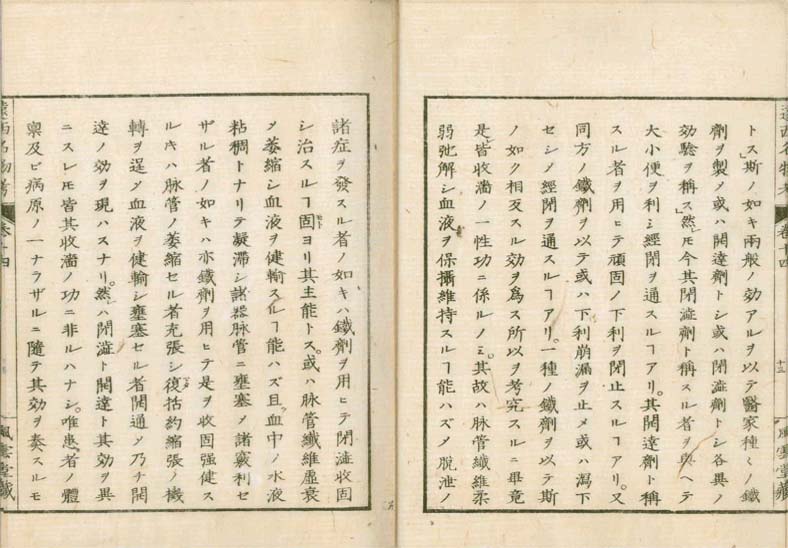 トス斯ノ如キ兩般ノ効アルヲ以テ醫家種々ノ鐵
劑ヲ製メ或ハ開達劑トシ或ハ閉澁劑トシ各異ノ
効驗ヲ稱ス然レ𪜈今其閉澁劑ト稱スル者ヲ與ヘテ
大小便ヲ利シ經閉ヲ通スルヿアリ。其開達劑ト稱
スル者ヲ用ヒテ頑固ノ下利ヲ閉止スルヿアリ。又
同方ノ鐵劑ヲ以テ或ハ下利崩漏ヲ止メ或ハ瀉下
セシメ經閉ヲ通スルヿアリ。一種ノ鐵劑ヲ以テ斯
ノ如ク相反スル効ヲ爲ス所以ヲ考究スルニ畢竟
是レ皆收濇ノ一性功ニ係ルノミ。其故ハ脉管纖維柔
弱弛解シ血液ヲ保攝維持スルヿ能ハズメ脱泄ノ
諸症ヲ發スル者ノ如キハ鐵劑ヲ用ヒテ閉澁收固
シ治スルヿ固ヨリ其主能トス。或ハ脉管纖維虛衰
メ萎縮シ血液ヲ健輸スルヿ能ハズ且ツ血中ノ水液
粘稠トナリテ凝滯シ諸器脉管ニ壅塞メ諸竅利セ
ザル者ノ如キハ亦鐵劑ヲ用ヒテ是ヲ收固强健ス
ルキハ脉管ノ萎縮セル者充張シ復タ括約縮張ノ機
轉ヲ逞メ血液ヲ健輸シ壅塞セル者開通メ乃チ開
達ノ効ヲ現ハスナリ。然レハ閉澁ト開達ト其効ヲ異
ニスレ𪜈皆其收濇ノ功ニ非ルハナシ。唯患者ノ體
稟及ビ病原ノ一ナラザルニ隨テ其効ヲ奏スルモ
遠西名物考
卷十四
十三
風雲堂藏
遠西名物考
卷十四
風雲堂藏